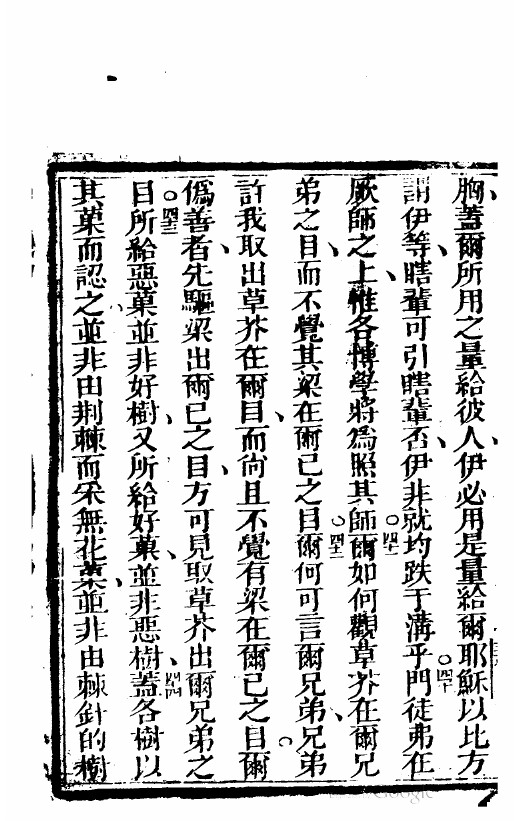 胸蓋爾所用之量給彼人伊必用是量給爾耶穌以比方
謂伊等瞎輩可引瞎輩否伊非就均跌于溝乎○四十門徒弗在
厥師之上惟各博學將為照其師○四一爾如何觀草芥在爾兄
弟之目而不覺其梁在爾己之目○四二爾何可言爾兄弟兄弟
許我取出草芥在爾目而尙且不覺有梁在爾己之目爾
僞善者先驅梁出爾己之目方可見取草芥出爾兄弟之
目○四三所給惡菓並非好樹又所給好菓並非惡樹○四四蓋各樹以
其菓而認之並非由荆棘而采無花菓並非由棘針的樹
Google